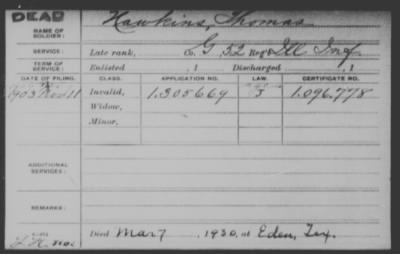 DEAD
NAME OF SOLDIER: Hawkins, Thomas
SERVICE: Late rank, Co. G, 52 Reg't Ill Inf.
TERM OF SERVICE: Enlisted , 1 Discharged , 1
DATE OF FILING. CLASS. APPLICATION NO. LAW. CERTIFICATE NO.
1903 Nov 11 Invalid, 1,305,669 1,096,778
Widow,
Minor,
ADDITIONAL SERVICES:
REMARKS:
Died Mar 7, 1930, at Eden, Tex.